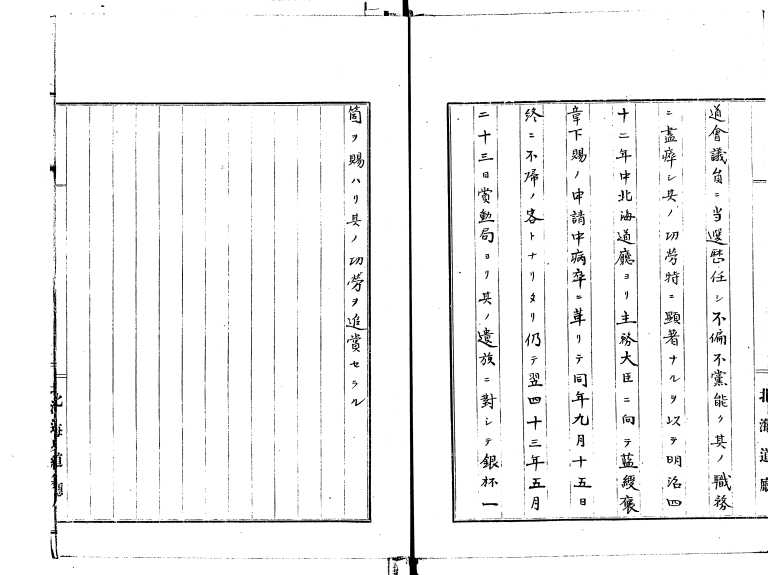 道會議員ニ当選歴任シ不偏不黨能ク其ノ職務
ニ盡瘁シ其ノ功労特ニ顯著ナルヲ以テ明治四
十二年中北海道廳ヨリ主務大臣ニ向テ藍綬褒
章下賜ノ申請中病卒ニ革リテ同年九月十五日
終ニ不帰ノ客トナリタリ仍テ翌四十三年五月
二十三日賞勲局ヨリ其ノ遺族ニ對シテ銀杯一
北海道廳
箇ヲ賜ハリ其ノ功労ヲ追賞セラル
北海道廳